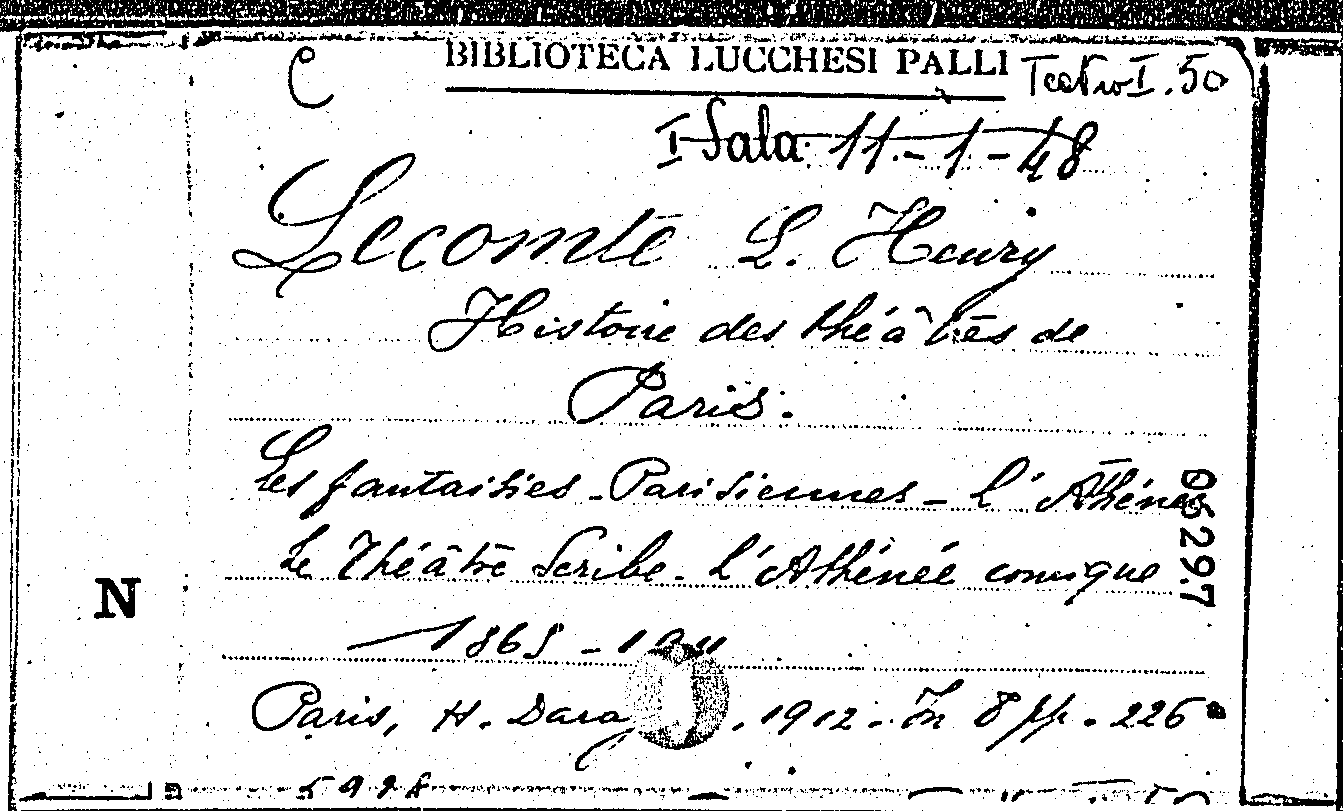 C
BIBLIOTECA LUCCHESI PALLI
Teatro I. 50
I Sala 11-1-48
Lecomte L. Henry
Histoire des théâtres de
Paris.
Les fantaisies-Parisiennes - L'Athénée
Le Théâtre Scribe - L'Athénée comique
1865 - 1911
N
06297
Paris, H. Dara , 1912. In 8 pp. 226